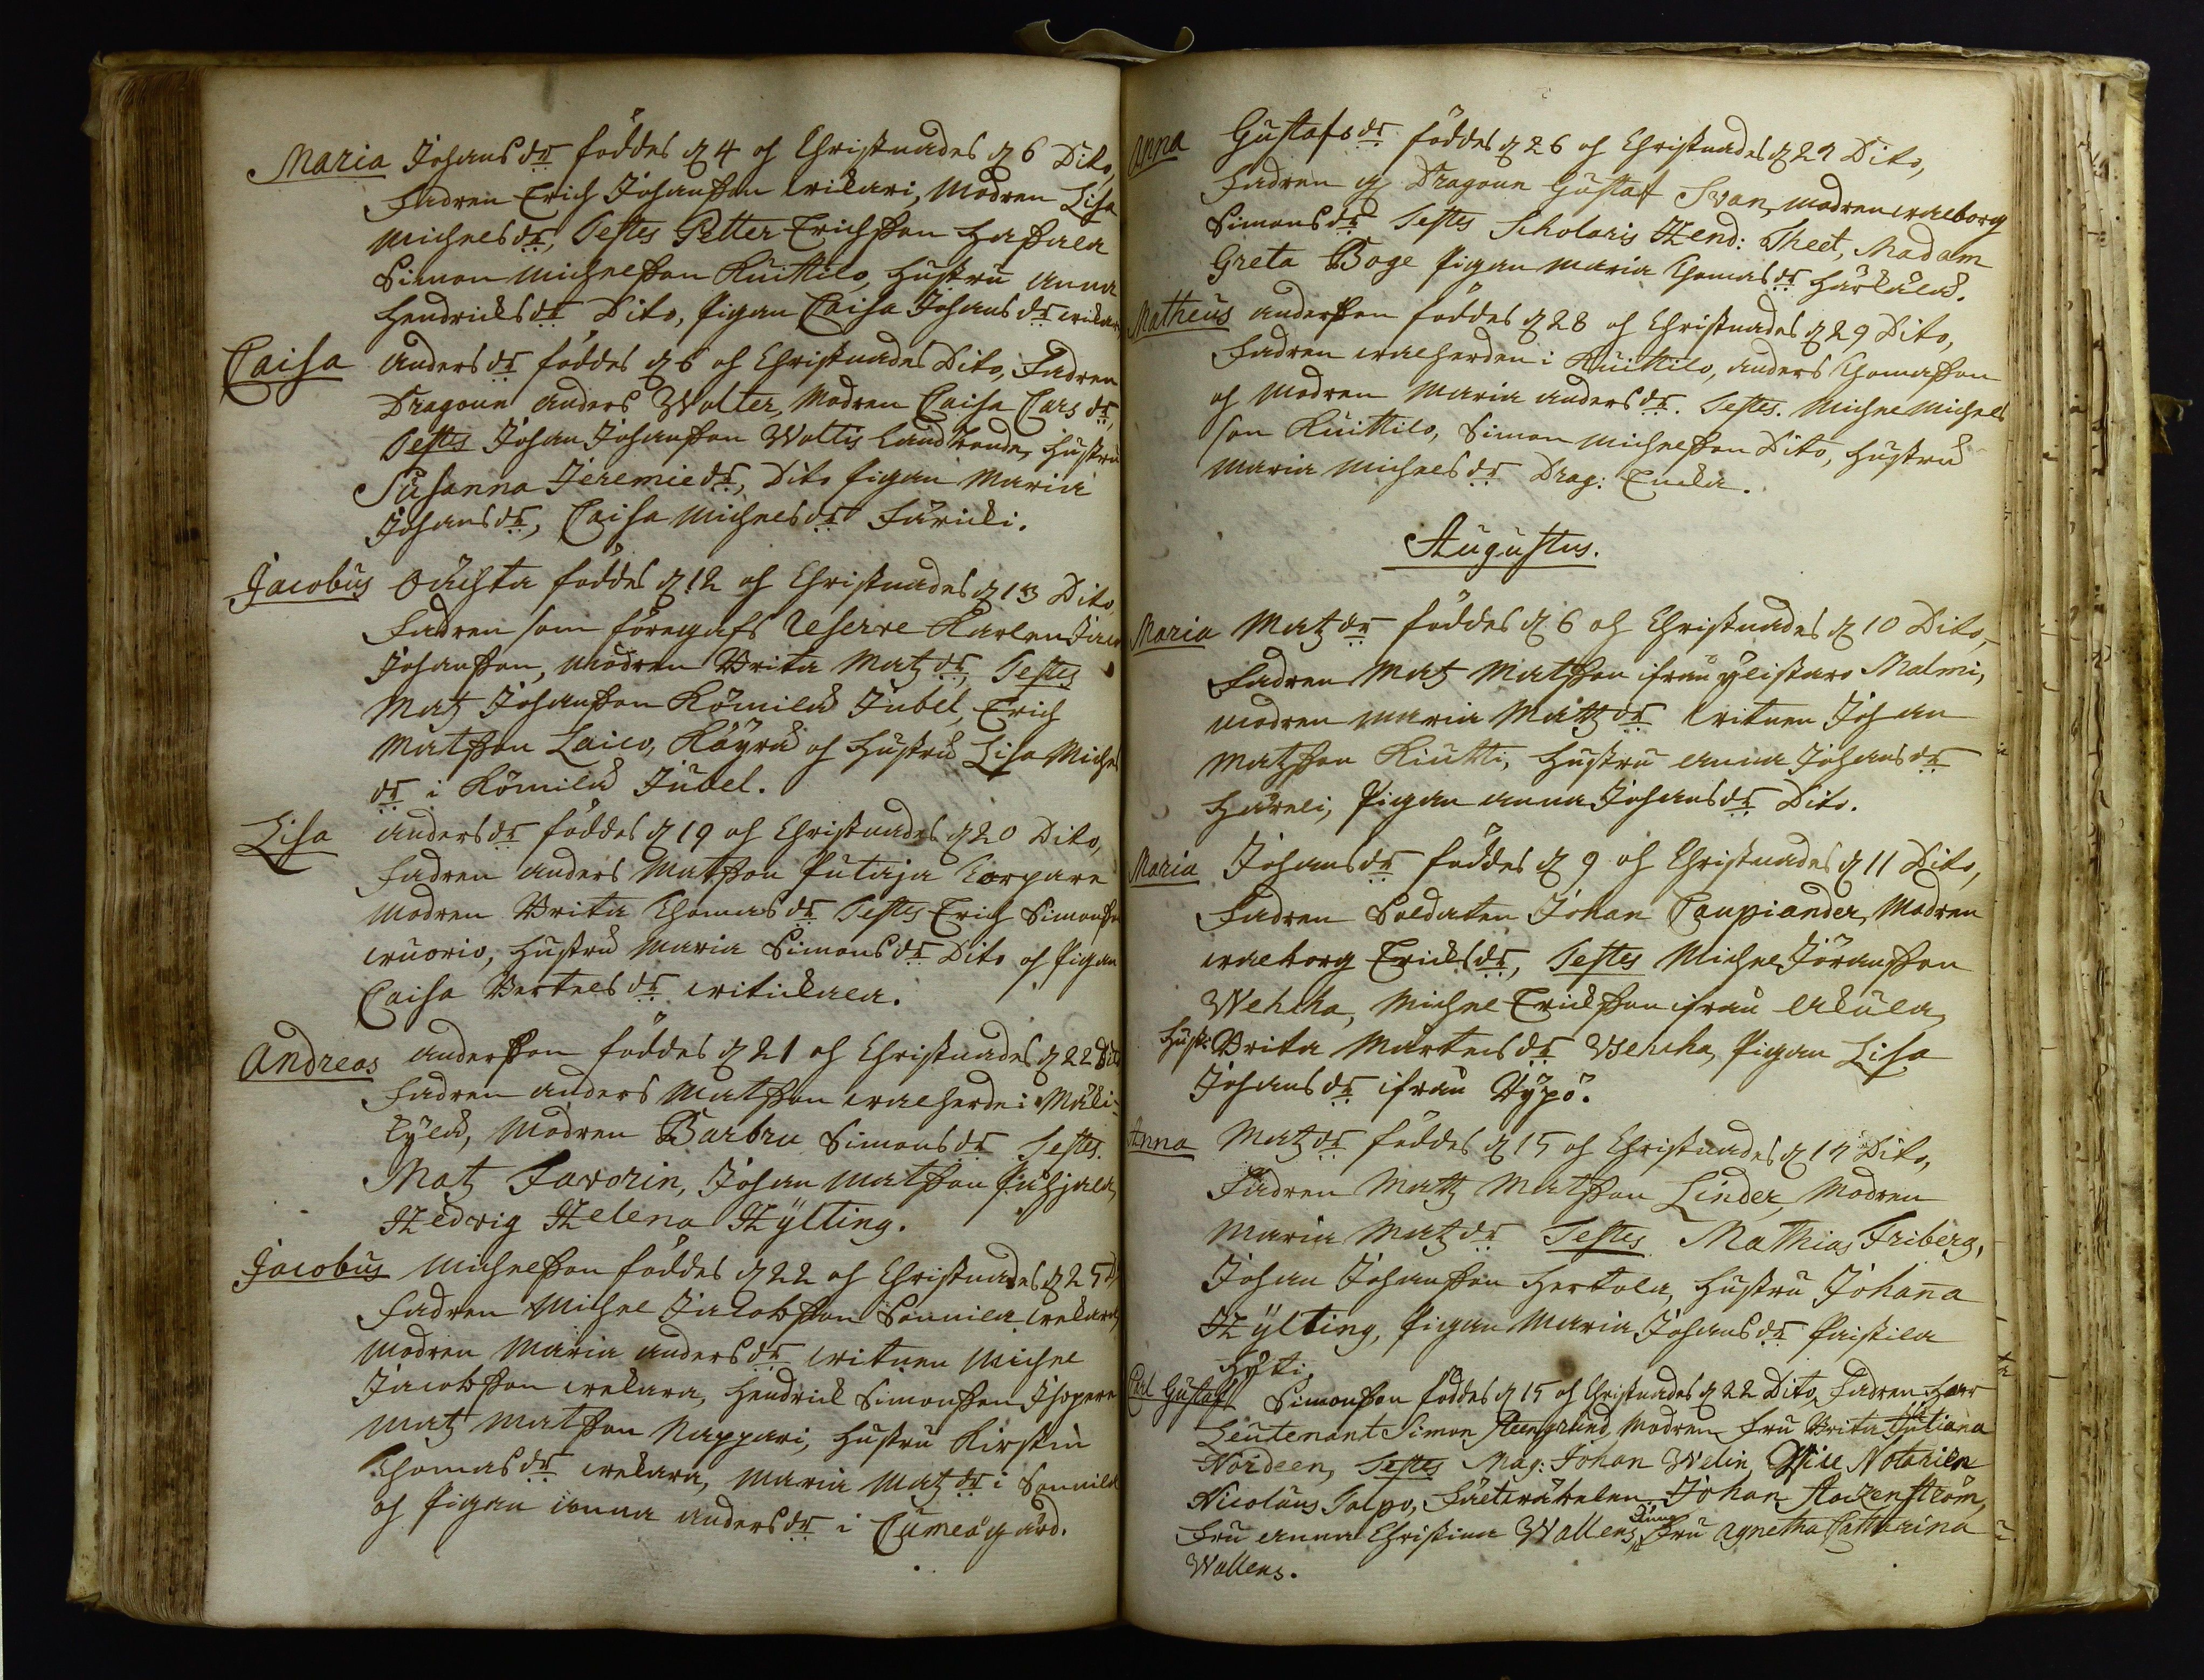 Maria Johansdr föddes d 4 och Christnades d 6 Dito,
Fadren Erich Johansson Wikari, Modren Lisa
Michelsdr, Testes Petter Erichsson Hassala
Simon Michelsson Kuittilo, hustru Anna
Hendricksdr Dito, pigan Caisa Johansdr
Caisa Andersdr föddes d 6 och Christnades Dito, Fadren
Dragoun Anders Wolter, Modren Caisa Carsdr,
Testes Johan Johansson Woltis Landbonde, hustru
Susanna Jeremiedr, Dito pigan Maria
Johansdr, Caisa Michelsdr
Jacobus Oächta föddes d 12 och Christnades d 13 Dito
Fadren som föregafs Reserve Karlen
Johansson, Modren Brita Matzdr, Testes
Matz Johansson Kömilä Jubel, Erich
Matsson Laico, Köyrä och hustru Lisa Michels
dr i Kömilä Jubel.
Lisa Andersdr föddes d 19 och Christnades d 20 Dito,
Fadren Anders Matsson Putaja Torpare
Modren Brita Thomasdr Testes Erich Simonsson
Wuorio, hustru Maria Simonsdr Dito och pigan
Caisa Bertelsdr Witickala.
Andreas Andersson föddes d 21 och Christnades d 22 Dito
Fadren Anders Matsson Walherde i Mäki-
kylä, Modren Barbru Simonsdr Testes.
Matz Favorin, Johan Matsson Puhjala,
Hedvig Helena Hylting.
Jacobus Michelsson föddes d 22 och Christnades d 25 D
Fadren Michel Jacobsson Sonnila
Modren Maria Andersdr Witnen Michel
Jacobsson Wekara, Hendrick Simonsson Isopere
Matz Matsson Nappari, hustru Kirstin
Thomasdr Wekara, Maria Matzdr i Sonnila
och pigan Anna Andersdr i Cumeågård.
Anna Gustafsdr föddes d 26 och Christnades d 27 Dito,
Fadren Dragoun Gustaf Svan, Modren Walborg
Simonsdr Testes Scholaris Hend: Theet, Madam
Greta Boge pigan Maria Thomasdr Härkälä.
Matheus Andersson föddes d 28 och Christnades d 29 Dito,
Fadren Walherden i Kuittilo, Anders Thomasson
och Modren Maria Andersdr. Testes. Michel Michels
son Kuittilo, Simon Michelsson Dito, hustru
Maria Michelsdr Drag:
Augustus.
Maria Matzdr föddes d 6 och Christnades d 10 Dito,
Fadren Matz Matsson ifrån Ylistaro Malmi,
Modren Maria Mattzdr Witnen Johan
Matsson Kiutti, hustru Anna Johansdr
Häreli, pigan Anna Johansdr Dito.
Maria Johansdr föddes d 9 och Christnades d 11 Dito,
Fadren Soldaten Johan Caupiander, Modren
Walborg Ericksdr, Testes Michel Jöransson
Wehcka, Michel Ericksson ifrån Ukula,
Hust: Brita Mårtensdr Wehcka, pigan Lisa
Johansdr ifrån Hypö.
Anna Matzdr föddes d 15 och Christnades d 17 Dito,
Fadren Mattz Matsson Linder, Modren
Maria Matzdr Testes Mathias Friberg,
Johan Johansson Hertola, hustru Johanna
Hylting, pigan Maria Johansdr Paistila
Carl Gustaf Simonsson föddes d 15 och Christnades d 22 Dito, Fadren Herr
Leutenant Simon Steengrund, Modren Fru Brita Juliana
Nordeen, Testes Mag: Johan Welin, Wice Notarien
Nicolaus Polpo, Fältwäbelen Johan Stockenström,
Fru Anna Christina Wallens, Jung Fru Agnetha Catharina
Wallens.